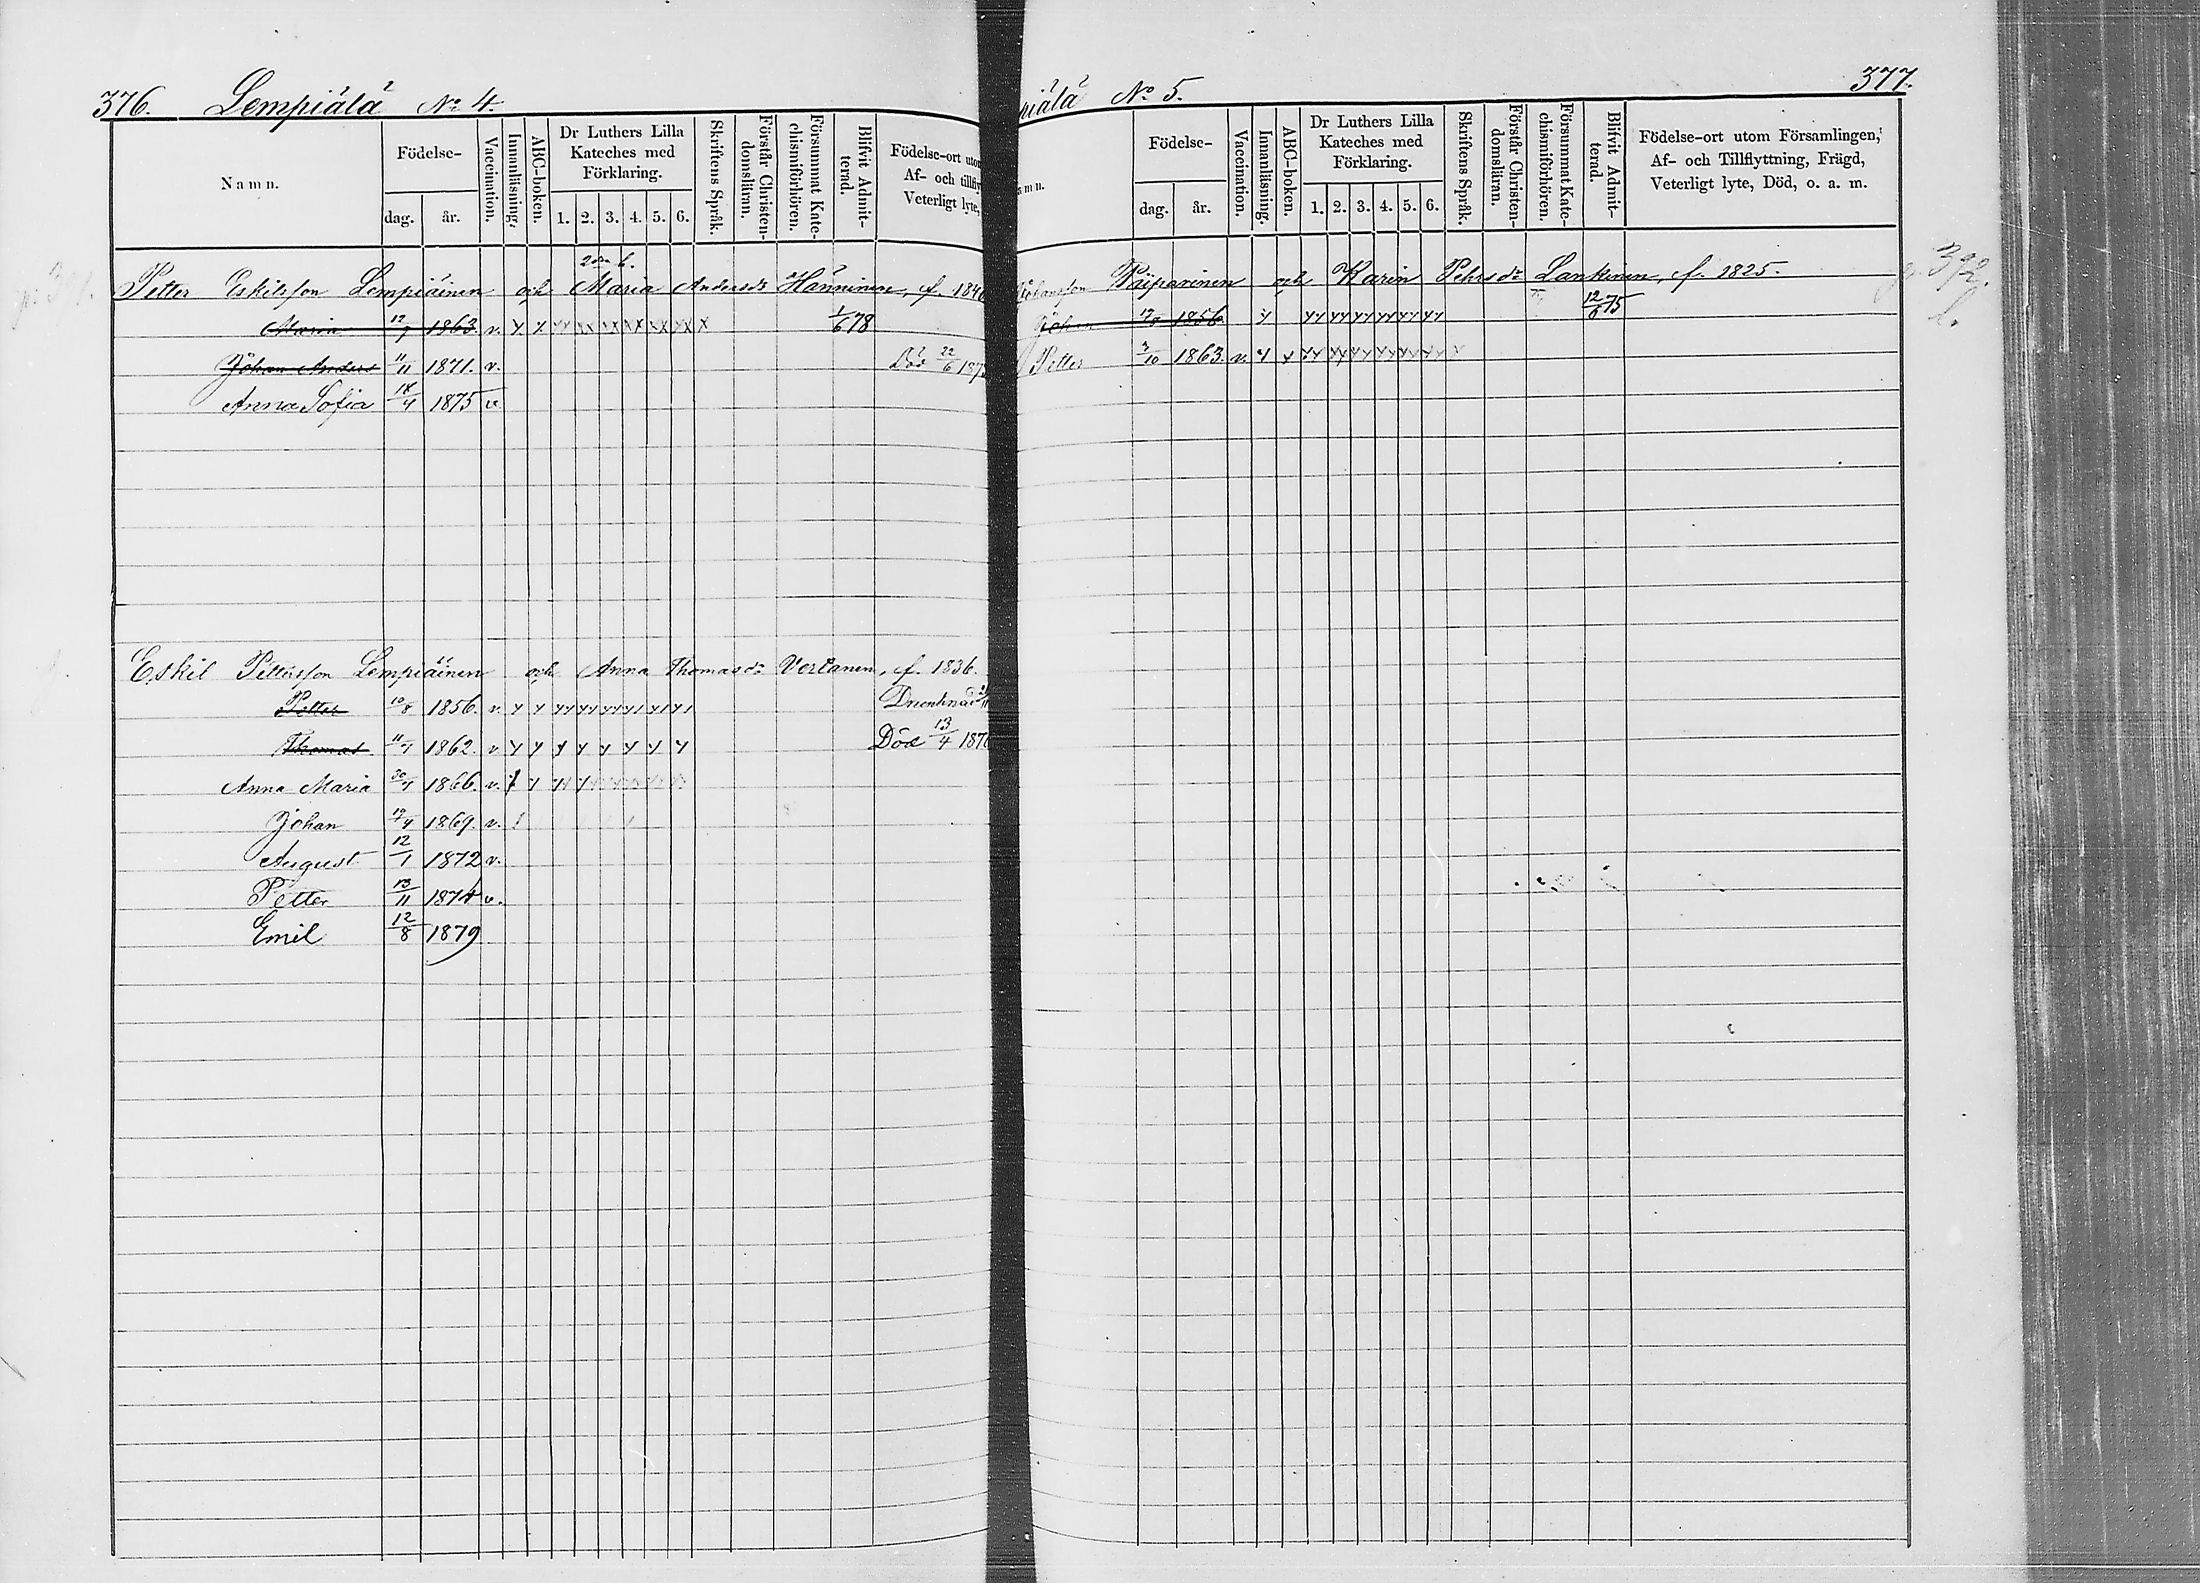 376. Lempiälä No 4.
Namn. Födelse- dag. år. Vaccination. Innanläsning. ABC-boken. Dr Luthers Lilla Kateches med Förklaring. 1. 2. 3. 4. 5. 6. Skriftens Språk. Förstår Christen-domsläran. Försummat Kate-chismiförhören. Blifvit Admit-terad. Födelse-ort utom Af- och tillfly Veterligt lyte,
2dra b.
Petter Eskilsson Lempiäinen och Maria Andersdr Hänninen, f. 184
Maria 12/7 1863. v. y x xx xx xx xx xx xx x 1/6 78
Johan Anders 11/11 1871. v. Död 22/6 187
Anna Sofia 14/4 1875 v.
Eskil Pettersson Lempiäinen och Anna Thomasdr Vertanen, f. 1836.
Petter 10/8 1856. v. y y yy yy yy yy yy yy Drunknad
Thomas 11/7 1862. v. y y y y y y y y Död 13/4 187
Anna Maria 30/7 1866. v.
Johan 19/4 1869. v.
August 12/1 1872 v.
Petter 13/11 1874 v.
Emil 12/8 1879
piälä No 5. 377.
mn. Födelse- dag. år. Vaccination. Innanläsning. ABC-boken. Dr Luthers Lilla Kateches med Förklaring. 1. 2. 3. 4. 5. 6. Skriftens Språk. Förstår Christen-domsläran. Försummat Kate-chismiförhören. Blifvit Admit-terad. Födelse-ort utom Församlingen, Af- och Tillflyttning, Frägd, Veterligt lyte, Död, o. a. m.
Johansson Päiparinen och Karin Pehrsdr Lankinen, f. 1825. 392.
Johan 1856 y yy yy yy yy yy yy 12/6 75
Petter 1863. v. y x yy yy yy yy yy yy